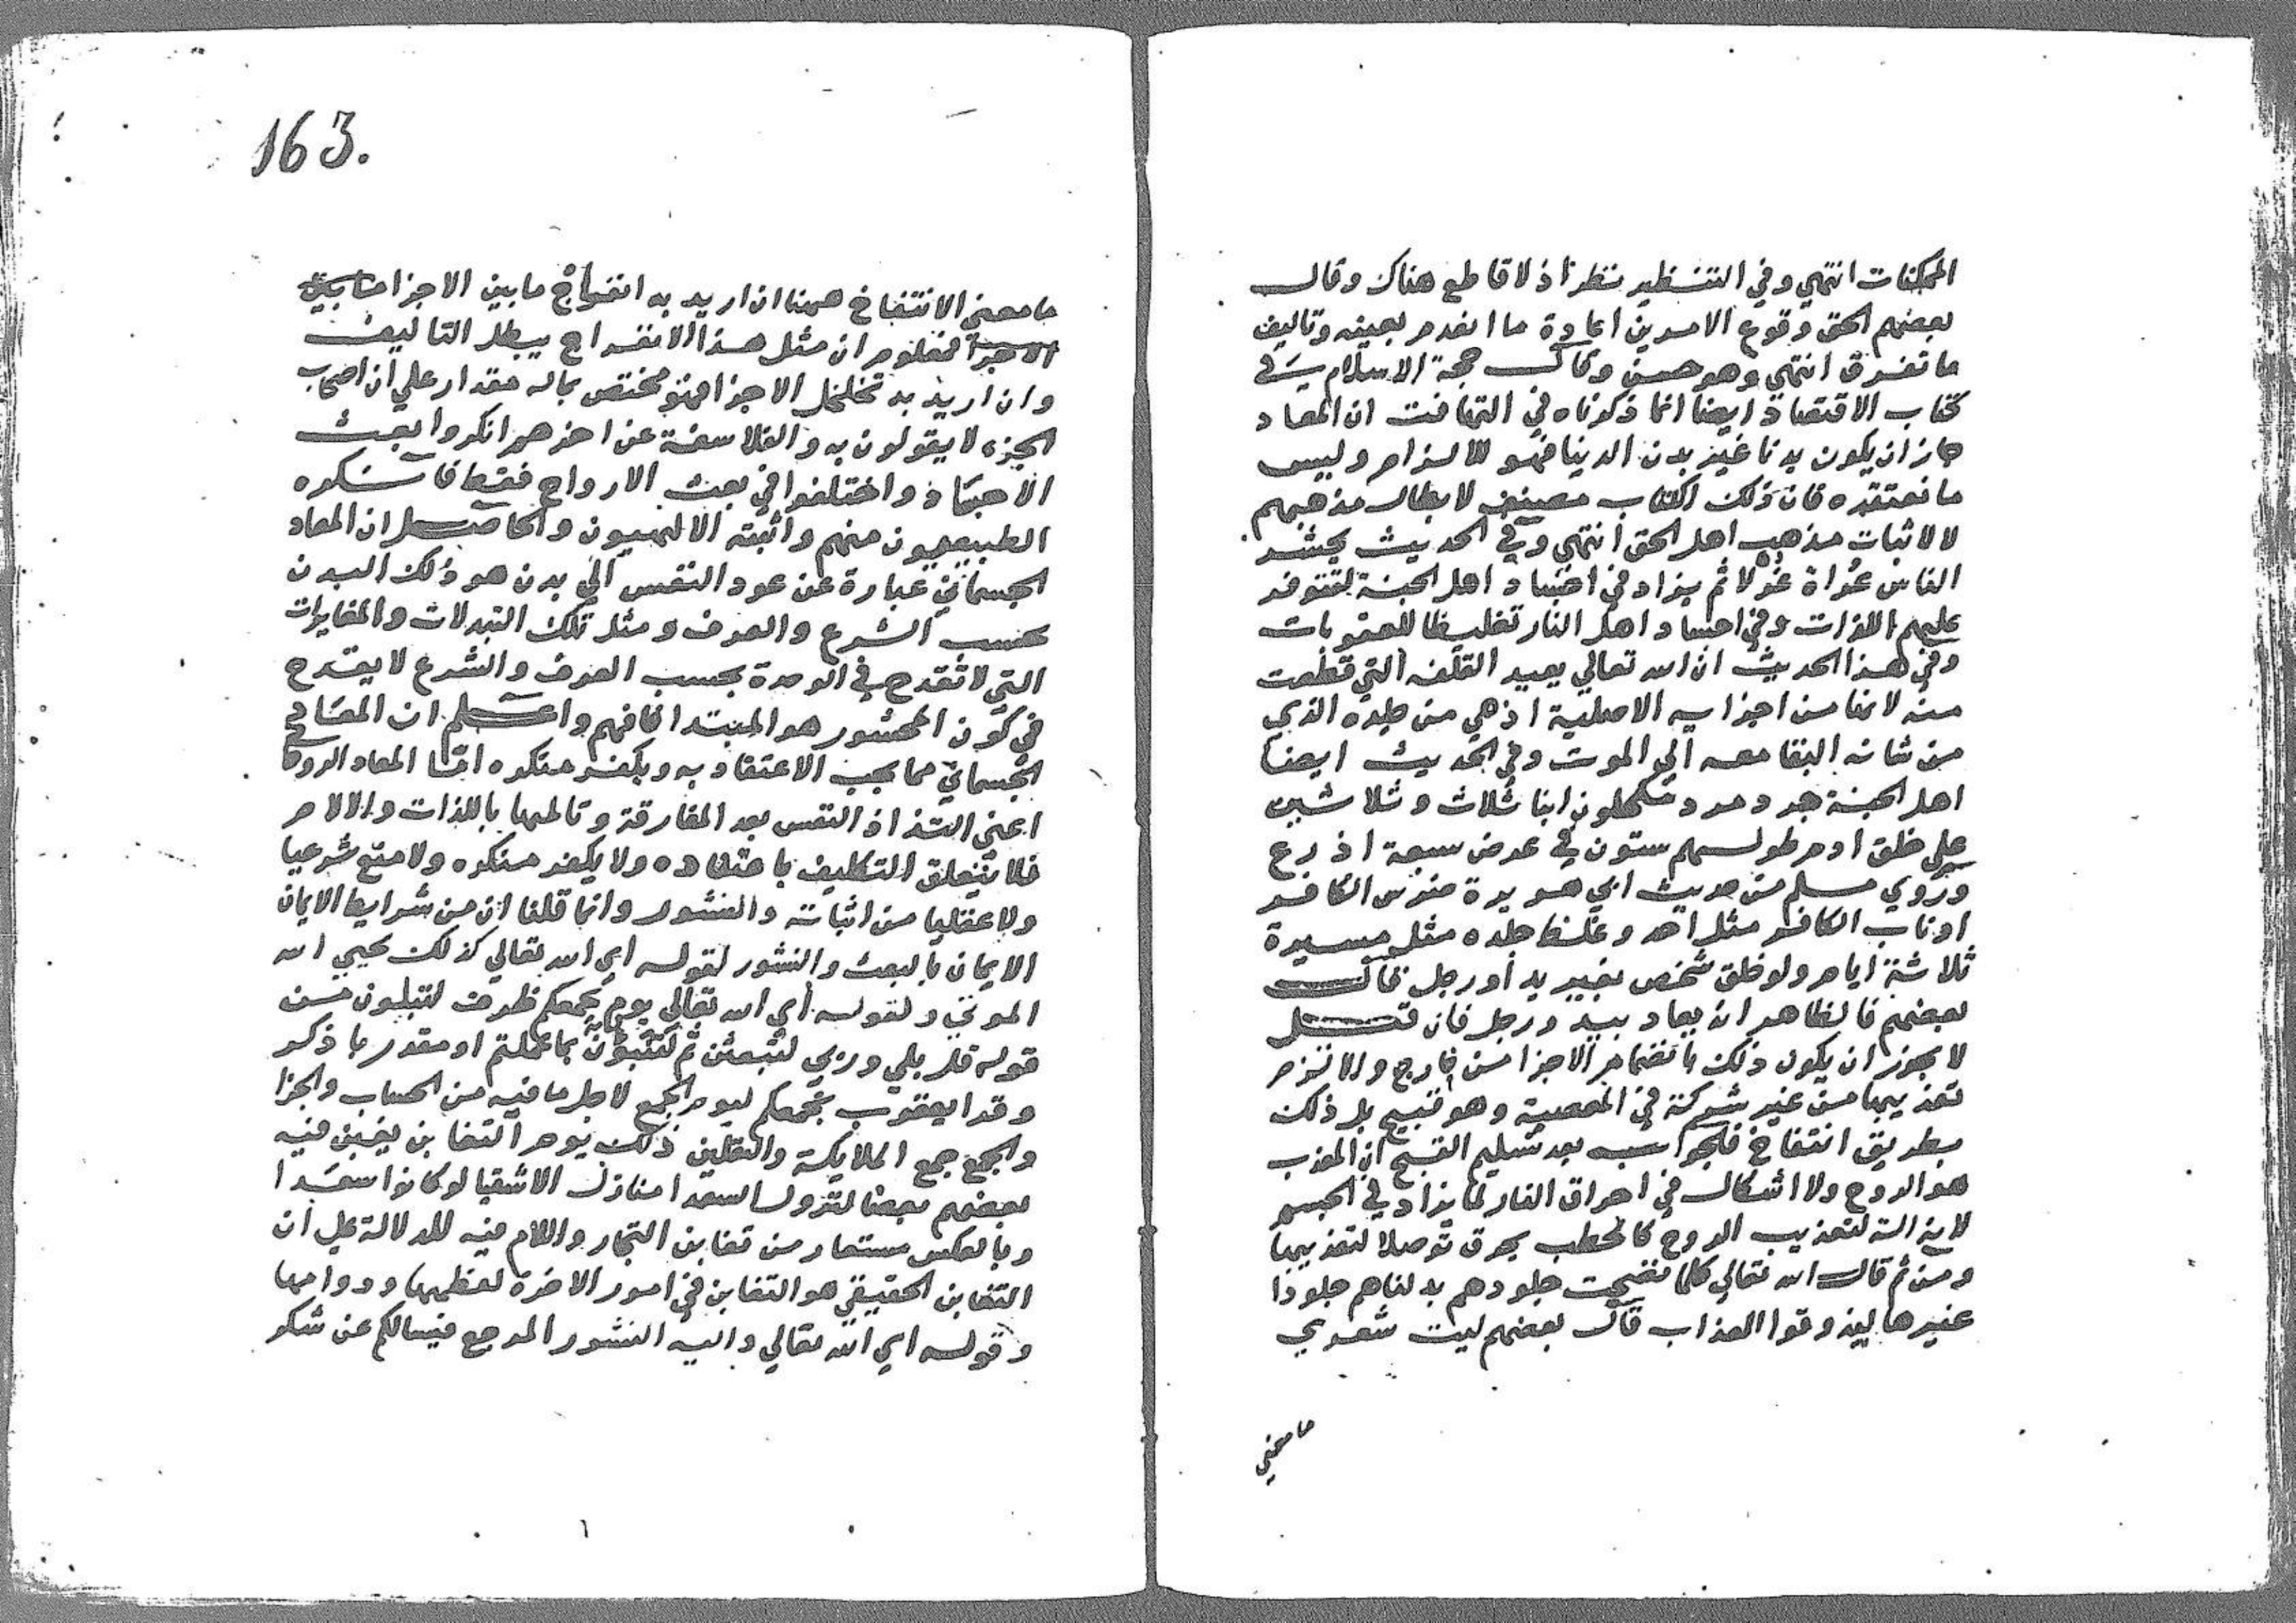 الممكنات انتهي وفي التنظير نظر اذ لا قاطع هناك وقال
بعضهم الحق وقوع الامرين اعادة ما انعدم بعينه وتاليف
ما تفرق انتهي وهو حسن وقال حجة الاسلام في
كتاب الاقتصاد ايضا انما ذكرناه في التهافت ان المعاد
جاز ان يكون بدنا غير بدن الدنيا فهو للالزام وليس
ما نعتقده فان ذلك الكتاب مصنف لابطال مذهبهم
لا لاثبات مذهب اهل الحق انتهي وفي الحديث يحشر
الناس عُراة غُرلا ثم يزاد في اجساد اهل الجنة لتتوفر
عليهم اللذات وفي اجساد اهل النار تغليظا للعقوبات
وفي هذا الحديث ان الله تعالي يعيد القلفه التي قطعت
منه لانها من اجزايه الاصلية اذ هي من جلده الذي
من شانه البقا معه الي الموت وفي الحديث ايضا
اهل الجنة جرد مرد مكحلون ابنا ثلاث وثلاثين
علي خلق ادم طولهم ستون في عرض سبعة اذرع
وروي مسلم من حديث ابي هريرة ضرس الكافر
او ناب الكافر مثل احد وغلظ جلده مثل مسيرة
ثلاثة ايام ولو خلق شخص بغير يد او رجل فقال
بعضهم فالظاهر ان يعاد بيد ورجل فان قيل
لا يجوز ان يكون ذلك بانضمام الاجزا من خارج والا لزم
تعذيبها من غير شركة في المعصية وهو قبيح بل ذلك
بطريق انتفاخ فالجواب بعد تسليم القبح ان المعذب
هو الروح ولا اشكال في احراق النار لما يزاد في الجسم
لانه الة لتعذيب الروح كالحطب يحرق توصلا لتعذيبها
ومن ثم قال الله تعالي كلما نضجت جلودهم بدلناهم جلودا
غيرها ليذوقوا العذاب قال بعضهم ليت شعري
ما معني
163.
ما معني الانتفاخ ههنا ان اريد به انفراج ما بين الاجزا
الاجزا فمعلوم ان مثل هذا الانفراج يبطل التاليف
وان اريد به تخلخل الاجزا فهو مختص بماله مقدار علي ان اصحاب
الجزء لا يقولون به والفلاسفة عن اخرهم انكروا بعث
الاجساد واختلفوا في بعث الارواح فقط فانكره
الطبيعيون منهم واثبته الالهيون والحاصل ان المعاد
الجسماني عبارة عن عود النفس الي بدن هو ذلك البدن
بحسب الشرع والعرف ومثل تلك التبدلات والمغايرات
التي لا تقدح في الوحدة بحسب العرف والشرع لا يقدح
في كون المحشور هو المبتدا فافهم واعلم ان المعاد
الجسماني مما يجب الاعتقاد به ويكفر منكره اما المعاد الروحا
اعني التذاذ النفس بعد المفارقة وتالمها باللذات والالام
فلا يتعلق التكليف باعتقاده ولا يكفر منكره ولا منع شرعيا
ولا عقليا من اثباته والنشور وانما قلنا ان من شرايط الايمان
الايمان بالبعث والنشور لقوله اي الله تعالي كذلك يحيي الله
الموتي ولقوله اي الله تعالي يوم يجمعكم ظرف لتنبؤن من
قوله قل بلي وربي لتبعثن ثم لتنبؤن بما عملتم او مقدر باذكر
وقرا يعقوب نجمعكم ليوم الجمع لاجل ما فيه من الحساب والجزا
والجمع جمع الملايكة والثقلين ذلك يوم التغابن يغبن فيه
بعضهم بعضا لنزول السعدا منازل الاشقيا لو كانوا سعدا
وبالعكس مستعار من تغابن التجار واللام فيه للدلالة علي ان
التغابن الحقيقي هو التغابن في امور الاخرة لعظمها ودوامها
وقوله اي الله تعالي واليه النشور المرجع فيسالكم عن شكر